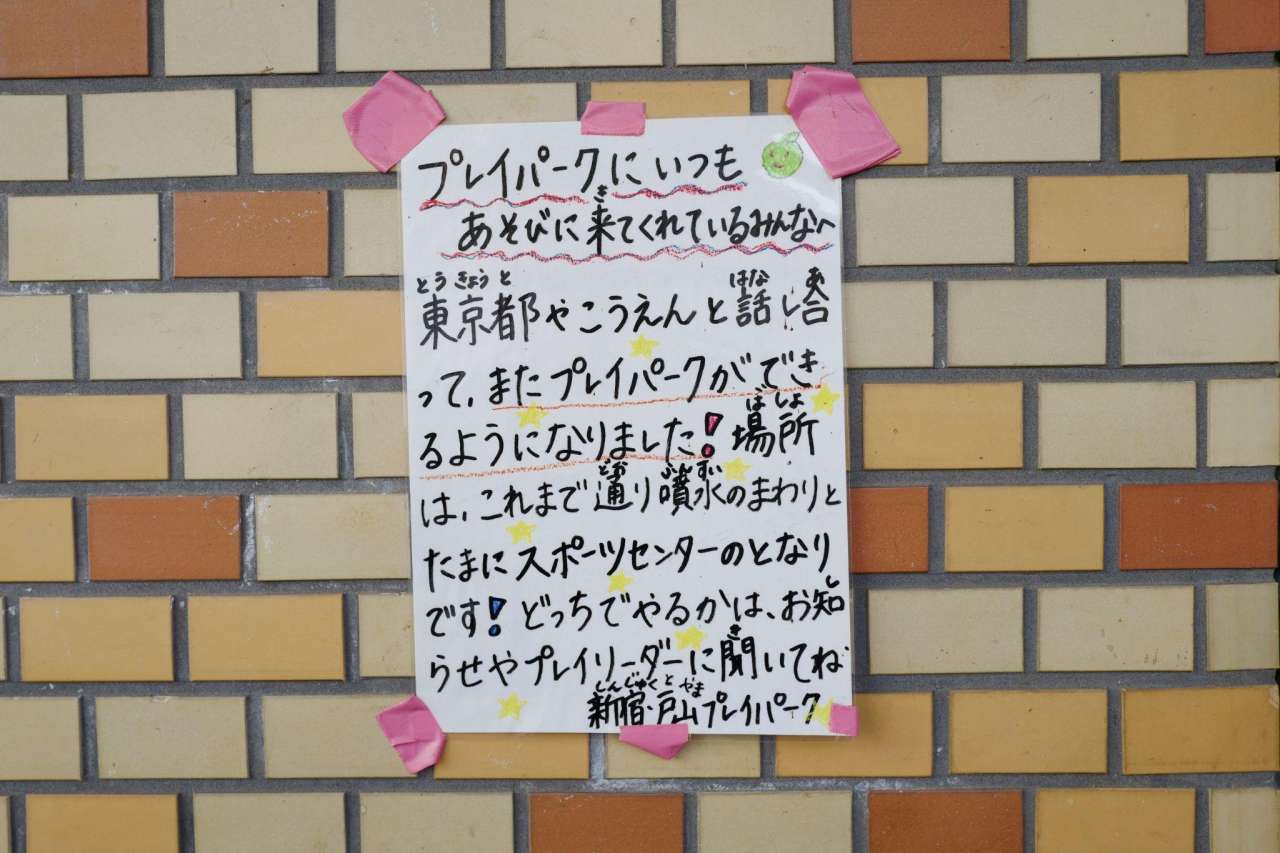 プレイパークにいつも
あそびに来てくれているみんなへ
き
とうきょうと はな あ
東京都やこうえんと話し合
って、またプレイパークができ
るようになりました！場所
ばしょ
は、これまで通り噴水のまわりと
どお ふんすい
たまにスポーツセンターのとなり
です！どっちでやるかは、お知
し
らせやプレイリーダーに聞いてね
き
しんじゅく とやま
新宿・戸山プレイパーク